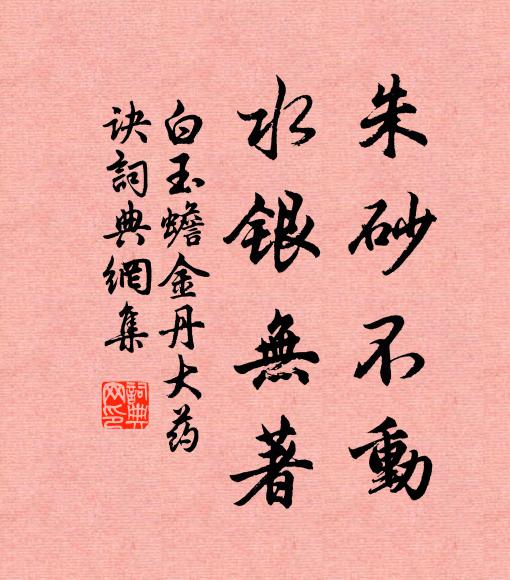 朱砂不動
水銀無著
白玉蟾金丹大药
诀詞典網集
詞典網印